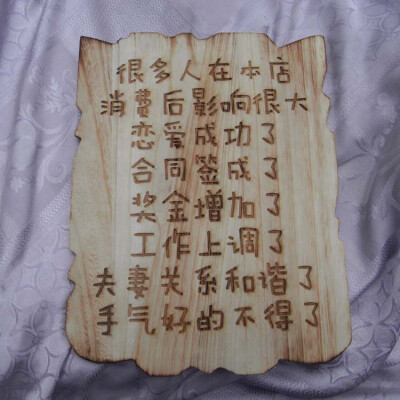 很多人在本店
消费后影响很大
恋爱成功了
合同签成了
奖金增加了
工作上调了
夫妻关系和谐了
手气好的不得了